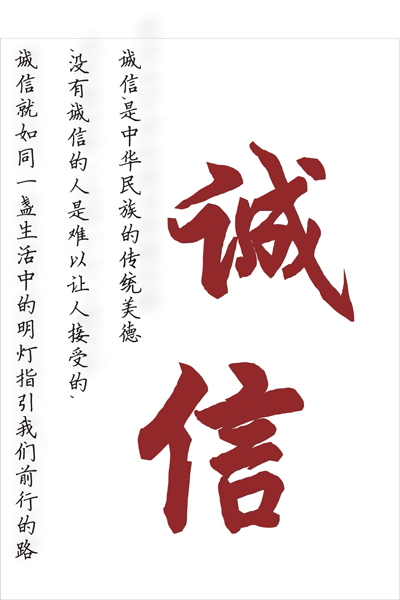 诚信
诚信是中华民族的传统美德
没有诚信的人是难以让人接受的、
诚信就如同一盏生活中的明灯指引我们前行的路